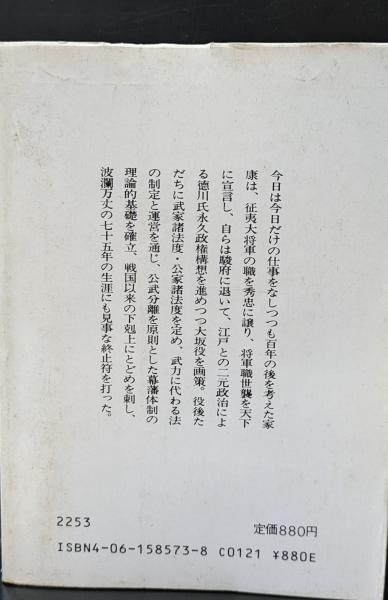 今日は今日だけの仕事をなしつつも百年の後を考えた家
康は、征夷大将軍の職を秀忠に譲り、将軍職世襲を天下
に宣言し、自らは駿府に退いて、江戸との二元政治によ
る徳川氏永久政権構想を進めつつ大坂役を画策。役後た
だちに武家諸法度・公家諸法度を定め、武力に代わる法
の制定と運営を通じ、公武分離を原則とした幕藩体制の
理論的基礎を確立、戦国以来の下剋上にとどめを刺し、
波瀾万丈の七十五年の生涯にも見事な終止符を打った。
2253
定価880円
ISBN4-06-158573-8 C0121 ¥880E